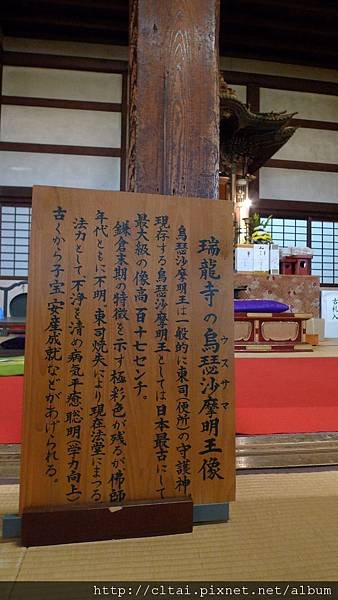 瑞龍寺の烏瑟沙摩明王像
ウスサマ
烏瑟沙摩明王は一般的に東司(便所)の守護神
現存する烏瑟沙摩明王としては日本最古にして
最大級の像高百十七センチ。
鎌倉末期の特徴を示す極彩色が残るが佛師
年代ともに不明、東司焼失により現在法堂にまつる
法力として不浄を清め病気平癒、聡明(学力向上)
古くから子宝、安産成就などがあげられる。
http://cltai.pixnet.net/album